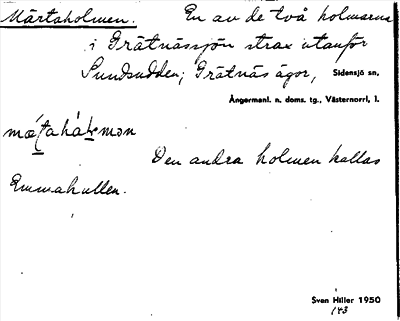 Märtaholmen. En av de två holmarna
i Grätnässjön strax utanför
Sundsudden; Grätnäs ägor, Sidensjö sn,
Ångermanl. n. doms. tg., Västernorrl, l.
Den andra holmen kallas
Emmakullen.
Sven Hiller 1950
143